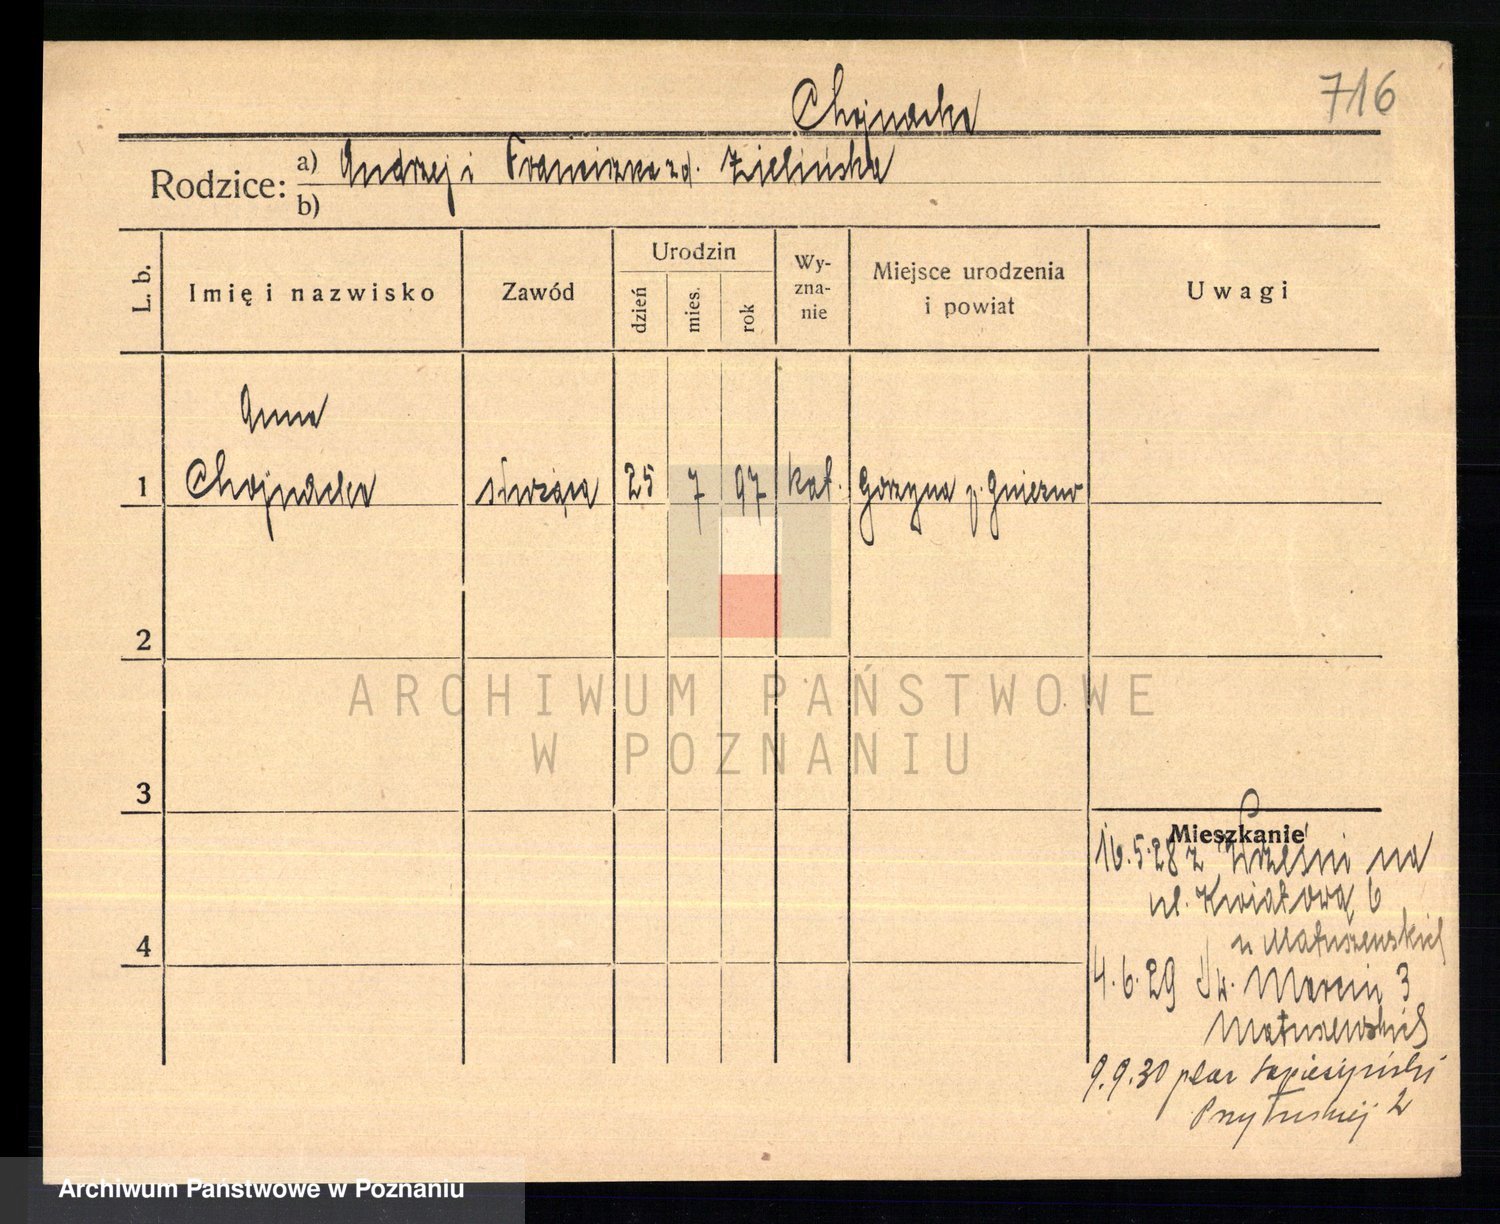 716
Chojnacka
Rodzice: a) Andrzej i Franciszka zd. Zielińska
b)
L. b.
Imię i nazwisko
Zawód
Urodzin
dzień
mies.
rok
Wy-
zna-
nie
Miejsce urodzenia
i powiat
Uwagi
Anna
1 Chojnacka służąca 25 7 97 kat. Gorzyna p. Gniezno
2
3
4
Mieszkanie
16.5.28 z Wrześni na
ul. Kwiatową 6
u Matuszewskich
4.6.29 Św. Marcin 3
Matuszewskich
9.9.30 plac Sapieżyński
2
ARCHIWUM PAŃSTWOWE
W POZNANIU
Archiwum Państwowe w Poznaniu